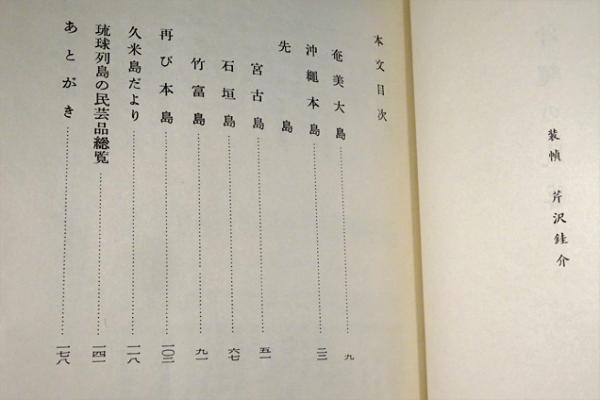 装幀 芹沢銈介
本文目次
奄美大島 九
沖縄本島 二三
先島
宮古島 五一
石垣島 六七
竹富島 九一
再び本島 一〇三
久米島だより 一一八
琉球列島の民芸品総覧 一四一
あとがき 一七八